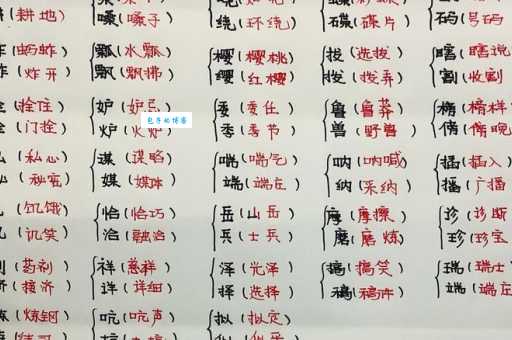 (耕地) 嗓(嗓子) 绕(环绕) 碟(碟片) 码(号码)
(蚱蜢) 瓢(水瓢) 樱(樱桃) 拔(选拔) 瞎(瞎说)
(炸开) 飘(飘拂) 缨(红樱) 拨(拨弄) 割(收割)
(拴住) 妒(妒忌) 委(委任) 鲁(鲁莽) 榜(榜样)
(门拴) 炉(火炉) 季(季节) 兽(野兽) 傍(傍晚)
包子的博客
(私心) 谋(谋陷) 喘(喘气) 呐(呐喊) 插(插入)
(秘密) 媒(媒体) 端(端庄) 纳(采纳) 播(广播)
(饥饿) 恰(恰巧) 岳(山岳) 摩(摩擦) 诊(诊断)
(讥笑) 洽(融洽) 兵(士兵) 磨(磨炼) 珍(珍宝)
(药剂) 祥(慈祥) 泽(光泽) 搞(搞笑) 瑞(瑞士)
(接济) 详(详细) 择(选择) 稿(稿件) 端(端庄)
(炼钢) 吭(吭声) 拟(拟定)